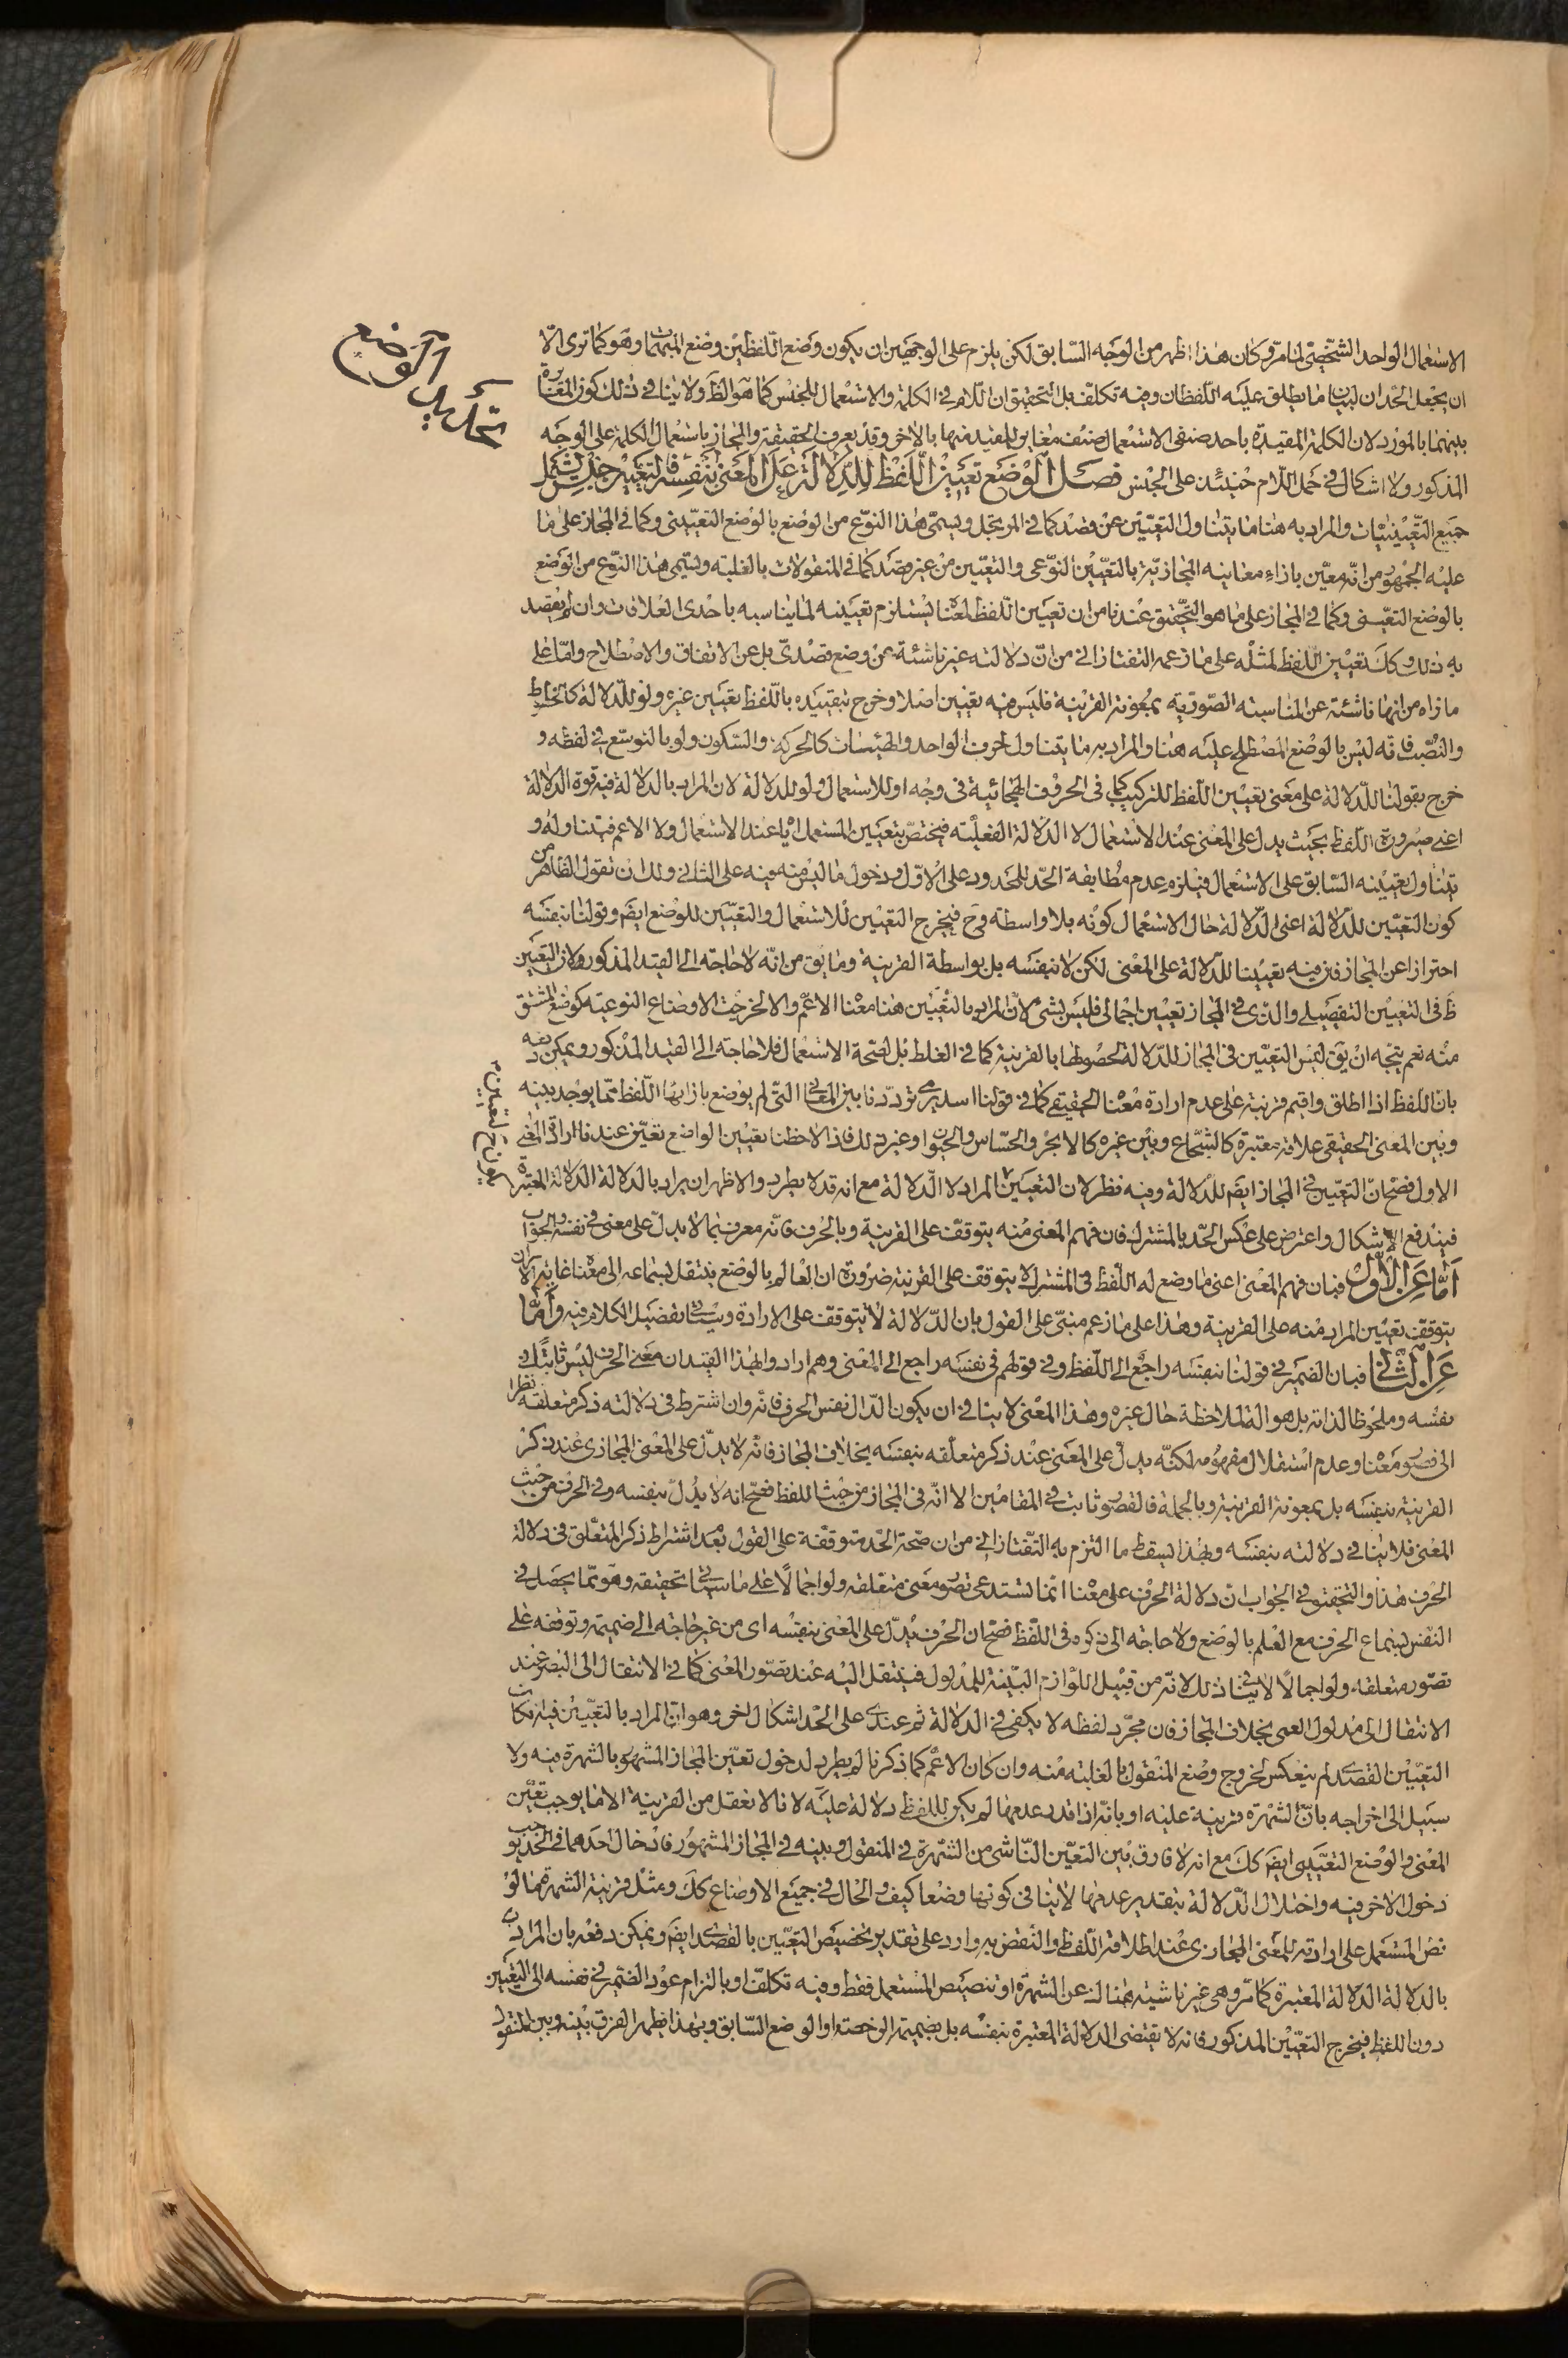 تحديد الوضع
الاستعمال الواحد الشخصي لما مر وكان هذا اظهر من الوجه السابق لكن يلزم على الوجهين ان يكون وضع اللفظين وضع المبهمات وهو كما ترى الا
ان يجعل الحدان لبيان ما يطلق عليه اللفظان وفيه تكلف بل التحقيق ان اللام في الكلمة والاستعمال للجنس كما هو الظ ولا ينافي ذلك كون المغايرة
بينهما بالمورد لان الكلمة المقيدة باحد صنفى الاستعمال صنف مغاير للمقيد منها بالاخر وقد يعرف الحقيقة والمجاز باستعمال الكلمة على الوجه
المذكور ولا اشكال في حمل اللام حينئذ على الجنس فصل الوضع تعيين اللفظ للدلالة على المعنى بنفسه فالتعيين جنس يشمل
جميع التعيينيات والمراد به هنا ما يتناول التعيين عن قصد كما في المرتجل ويسمى هذا النوع من الوضع بالوضع التعييني وكما في المجاز على ما
عليه الجمهور من انه معين بازاء معانيه المجازية بالتعيين النوعى والتعين من غير قصد كما في المنقولات بالغلبة ويسمى هذا النوع من الوضع
بالوضع التعيني وكما في المجاز على ما هو التحقيق عندنا من ان تعيين اللفظ لمعنا يستلزم تعيينه لما يناسبه باحدى العلاقات وان لم يقصد
به ذلك وكك تعيين اللفظ لمثله على ما زعمه التفتازاني من ان دلالته غير ناشئة عن وضع قصدى بل عن الاتفاق والاصطلاح واما على
ما نراه من انها ناشئة عن المناسبة الصورية بمعونة القرينة فليس فيه تعيين اصلا وخرج بتقييده باللفظ تعيين غيره ولو للدلالة كالخطوط
والنصب فانه ليس بالوضع المصطلح عليه هنا والمراد به ما يتناول الحرف الواحد والهيئات كالحركة والسكون ولو بالتوسع في لفظه و
خرج بقولنا للدلالة على معنى تعيين اللفظ للتركيب كما في الحروف الهجائية في وجه او للاستعمال ولو للدلالة لان المراد بالدلالة فيه قوة الدلالة
اعنى صيرورة اللفظ بحيث يدل على المعنى عند الاستعمال لا الدلالة الفعلية فيختص بتعيين المستعمل اياه عند الاستعمال ولا الاعم فيتناوله و
يتناول تعيينه السابق على الاستعمال فيلزم عدم مطابقة الحد للمحدود على الاول ودخول ما ليس منه فيه على الثاني ولك ان تقول الظاهر من
كون التعيين للدلالة اعنى الدلالة حال الاستعمال كونه بلا واسطة وح فيخرج التعيين للاستعمال والتعيين للوضع ايضا وقولنا بنفسه
احترازا عن المجاز فان فيه تعيينا للدلالة على المعنى لكن لا بنفسه بل بواسطة القرينة وما يق من انه لا حاجة الى القيد المذكور لان التعيين
ظ في التعيين التفصيلى والذي في المجاز تعيين اجمالى فليس بشئ لان المراد بالتعيين هنا معنا الاعم والا لخرجت الاوضاع النوعية كوضع المشتق
منه نعم يتجه ان يق ليس التعيين في المجاز للدلالة لحصولها بالقرينة كما في الغلط بل لصحة الاستعمال فلا حاجة الى القيد المذكور ويمكن دفعه
بان اللفظ اذا اطلق واقيم قرينة على عدم ارادة معنا الحقيقى كما في قولنا اسد يرمى ترددنا بين المعاني التي لم يوضع بازائها اللفظ مما يوجد بينه
وبين المعنى الحقيقى علاقة معتبرة كالشجاع وبين غيره كالابخر والحساس والحيوان وغير ذلك فاذا لاحظنا تعيين الواضع تعين عندنا ارادة المعنى
الاول فصح ان التعيين في المجاز ايضا للدلالة وفيه نظر لان التعيين المراد لا الدلالة مع انه قد لا يطرد والاظهر ان يراد بالدلالة الدلالة المعتبرة
فيندفع الاشكال واعترض على عكس الحد بالمشترك فان فهم المعنى منه يتوقف على القرينة وبالحرف فانه معرف بما لا يدل على معنى في نفسه والجواب
اما عن الاول فبان فهم المعنى اعنى ما وضع له اللفظ في المشترك لا يتوقف على القرينة ضرورة ان العالم بالوضع ينتقل بسماعه الى معنا غاية الامر ان
يتوقف تعيين المراد منه على القرينة وهذا على ما زعم مبنى على القول بان الدلالة لا تتوقف على الارادة وسيأتى تفصيل الكلام فيه واما
عن الثاني فبان الضمير في قولنا بنفسه راجع الى اللفظ وفي قولهم في نفسه راجع الى المعنى وهم ارادوا بهذا القيد ان معنى الحرف ليس ثابتا في
نفسه وملحوظا لذاته بل هو آلة لملاحظة حال غيره وهذا المعنى لا ينافي ان يكون الدال نفس الحرف فانه وان اشترط في دلالته ذكر متعلقه نظرا
الى قصور معنا وعدم استقلال مفهومه لكنه يدل على المعنى عند ذكر متعلقه بنفسه بخلاف المجاز فانه لا يدل على المعنى المجازى عند ذكر
القرينة بنفسه بل بمعونة القرينة وبالجملة فالقصور ثابت في المقامين الا انه في المجاز من حيث اللفظ فصح انه لا يدل بنفسه وفي الحرف من حيث
المعنى فلا ينافي دلالته بنفسه وبهذا يسقط ما التزم به التفتازاني من ان صحة الحد متوقفة على القول بعد اشتراط ذكر المتعلق في دلالة
الحرف هذا والتحقيق في الجواب ان دلالة الحرف على معنا انما تستدعى تصور معنى متعلقه ولو اجمالا على ما سيأتى تحقيقه وهو مما يحصل في
النفس بسماع الحرف مع العلم بالوضع ولا حاجة الى ذكره في اللفظ فصح ان الحرف يدل على المعنى بنفسه اى من غير حاجة الى ضميمة وتوقفه على
تصور متعلقه ولو اجمالا لا ينافي ذلك لانه من قبيل اللوازم البينة للمدلول فينتقل اليه عند تصور المعنى كما في الانتقال الى البصر عند
الانتقال الى مدلول العمى بخلاف المجاز فان مجرد لفظه لا يكفى في الدلالة ثم عندى على الحد اشكال اخر وهو ان المراد بالتعيين فيه ان كان
التعيين القصدى لم ينعكس لخروج وضع المنقول بالغلبة منه وان كان الاعم كما ذكرنا لم يطرد لدخول تعين المجاز المشهور بالشهرة فيه ولا
سبيل الى اخراجه بان الشهرة قرينة عليه او بانه اذا قدر عدمها لم يكن للفظ دلالة عليه لانا لا نعقل من القرينة الا ما يوجب تعين
المعنى والوضع التعينى ايضا كك مع انه لا فارق بين التعين الناشى من الشهرة في المنقول وبينه في المجاز المشهور فادخال احدهما في الحد يوجب
دخول الاخر فيه واختلال الدلالة بتقدير عدمها لا ينافي كونها وضعا كيف والحال في جميع الاوضاع كك ومثل قرينة الشهرة ما لو
نص المستعمل على ارادته للمعنى المجازى عند اطلاقه اللفظ والنقض به وارد على تقدير تخصيص التعيين بالقصدى ايضا ويمكن دفعه بان المراد
بالدلالة الدلالة المعتبرة كما مر وهى غير ناشية هناك عن الشهرة او تنصيص المستعمل فقط وفيه تكلف او بالتزام عود الضمير في نفسه الى التعيين
دون اللفظ فيخرج التعيين المذكور فانه لا يقتضى الدلالة المعتبرة بنفسه بل بضميمة الرخصة او الوضع السابق وبهذا يظهر الفرق بينه وبين المنقول